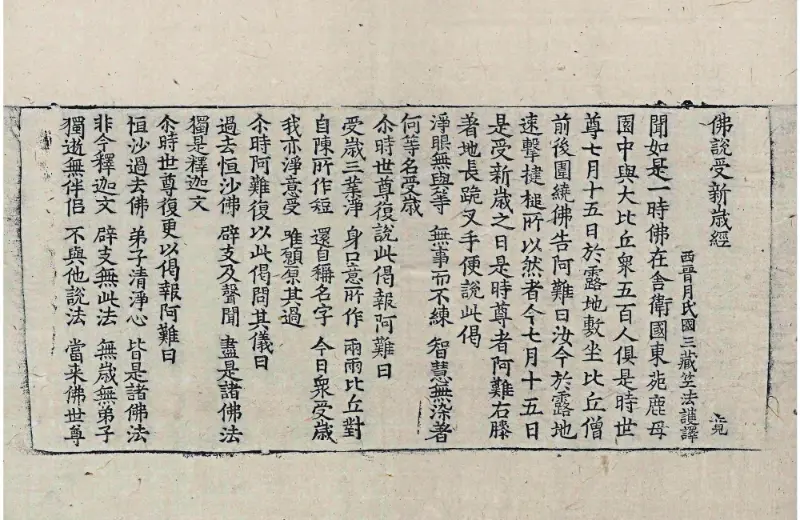 佛說受新歲經
西晉月氏國三藏竺法護譯
聞如是一時佛在舍衛國東苑鹿母
園中與大比丘衆五百人俱是時世
尊七月十五日於露地敷坐比丘僧
前後圍繞佛告阿難曰汝今於露地
速擊揵槌所以然者今七月十五日
是受新歲之日是時尊者阿難右膝
著地長跪叉手便說此偈
淨眼無與等 無事而不練 智慧無染著
何等名受歲
尒時世尊復說此偈報阿難曰
受歲三業淨 身口意所作 兩兩比丘對
自陳所作短 還自稱名字 今日衆受歲
我亦淨意受 唯願原其過
尒時阿難復以此偈問其儀曰
過去恒沙佛 辟支及聲聞 盡是諸佛法
獨是釋迦文
尒時世尊復更以偈報阿難曰
恒沙過去佛 弟子清淨心 皆是諸佛法
非今釋迦文 辟支無此法 無歲無弟子
獨逝無伴侶 不與他說法 當来佛世尊